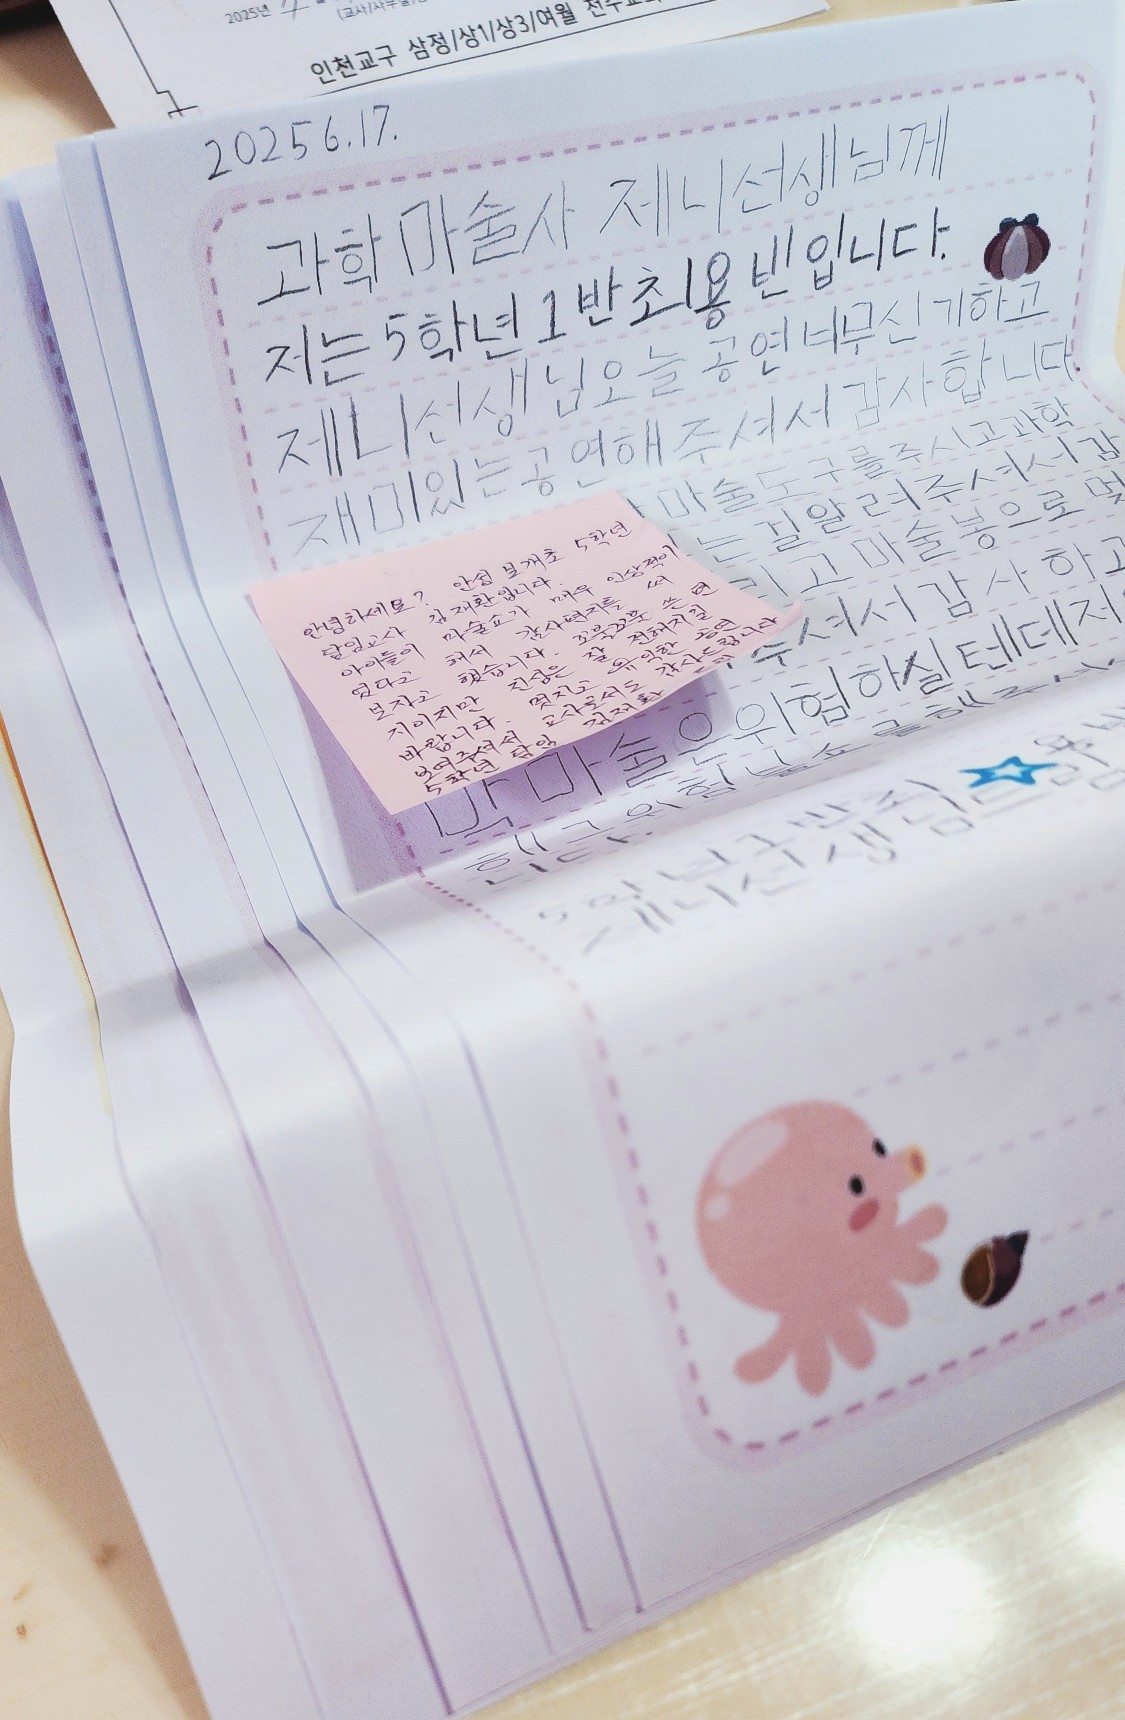 2025년
인천교구 삼정/상1/상3/여월
2025 6.17.
과학 마술사 제니선생님께
저는 5학년 1반 최용빈입니다.
제니선생님 오늘 공연 너무 신기하고
재미있는 공연해 주셔서 감사합니다.
마술도구를 주시고 과학
는 길 알려주셔서 감
리고 마술봉으로 멋
주셔서 감사하고
마술은 위험하실텐데 저
5학년
제니선생
안녕하세요? 안성 보개초 5학년
담임교사 김재환입니다.
아이들이 마술쇼가 매우 인상적이
었다고 해서 감사편지를 써
보자고 했습니다. 꼬불꼬불 쓰면
지이지만 진심은 잘 전해지길
바랍니다. 멋지고 유익한 공연
보여주셔서 교사로서도 감사드립니다
5학년 담임 김재환